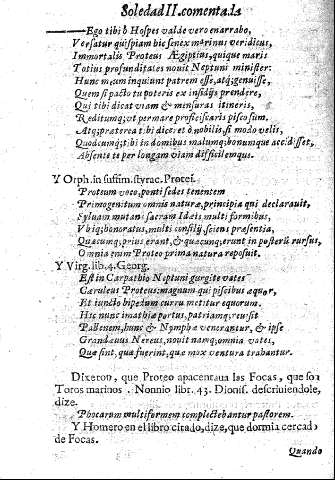 Soledad II. comenta.la
Ego tibi ô Hospes valde vero enarrabo,
Versatur quispiam hic senex marinus veridicus,
Immortalis Proteus Ægiptius, quique maris
Totius profunditates nouit Neptuni minister:
Hunc meum inquiunt patrem esse, atq; genuisse,
Quem si pacto tu poteris ex insidijs prendere,
Qui tibi dicat viam & mensuras itineris,
Reditumq; vt permare proficiscaris piscosum,
Atq; præterea tibi dicet ò nobilis, si modo velis,
Quodcumq; tibi in domibus malumq; bonumque accidisset,
Absente te per longam viam difficilemque.
Y Orph. in suffim. styrac. Protei.
Proteum voco, ponti sedes tenentem
Primogenitum omnis naturæ, principia qui declarauit,
Syluam mutans sacram Ideis multiformibus,
Vbiq; honoratus, multi consilij, sciens præsentia,
Quæcumq; prius erant, & quæcumq; erunt in posterũ rursus,
Omnia enim Proteo prima natura reposuit.
Y Virg. lib. 4. Georg.
Est in Carpathio Neptuni gurgite vates
Cæruleus Proteus: magnum qui piscibus equor,
Et iuncto bipedum curru metitur equorum.
Hic nunc imathiæ portus, patriamq; reuisit
Pallenem, hunc & Nymphæ venerantur, & ipse
Grandæuus Nereus, nouit namq; omnia vates,
Quæ sint, quæ fuerint, quæ mox ventura trahantur.
Dixeron, que Proteo apacentaua las Focas, que son
Toros marinos. Nonnio libr. 43. Dionis. descriuiendole,
dize.
Phocarum multiformem complectebantur pastorem.
Y Homero en el libro citado, dize, que dormia cercado
de Focas.
Quando